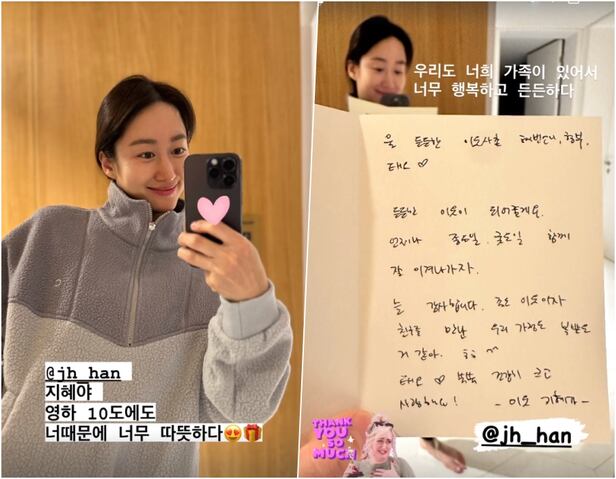 @jh_han
지혜야
영하 10도에도
너때문에 너무 따뜻하다😍🎁
우리도 너희 가족이 있어서
너무 행복하고 든든하다
울 든든한 이모삼촌
태오 ♡
든든한 이모이 되어줄게요.
언제나 좋은일, 궂은일 함께
잘 이겨나가자.
늘 감사합니다. 좋은 이모이자
친구를 만난 우리 가족도 복받은
거 같아. ㅎㅎ ^^
태오 ♡ 쑥쑥 건강히 크고
사랑해요! - 이모 지혜가 -
THANK YOU SO MUCH!
@jh_han